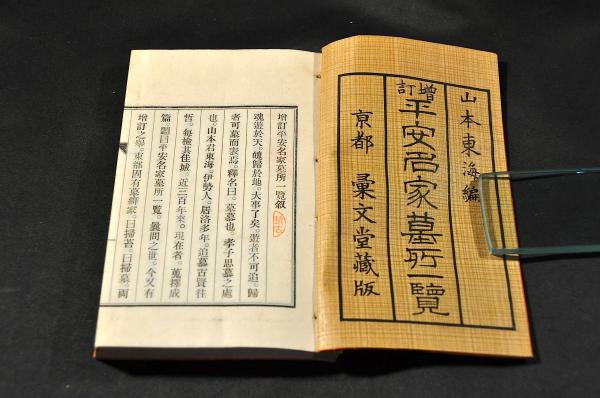 山本東海編
增訂平安名家墓所一覽
京都 彙文堂藏版
增訂平安名家墓所一覽敘
魂遊於天。魄歸於地。大事了矣。遊者不可追。歸
者可墓而表焉。釋名曰。墓慕也。孝子思慕之處
也。山本君東海。伊勢人。居洛多年。追慕古賢往
哲。每檢其佳城。近三百年來。現在者。蒐擇成
篇。題曰平安名家墓所一覽。曩問之世。今又有
增訂之舉。東都固有墓癖家。曰掃苔。曰掃墓。兩